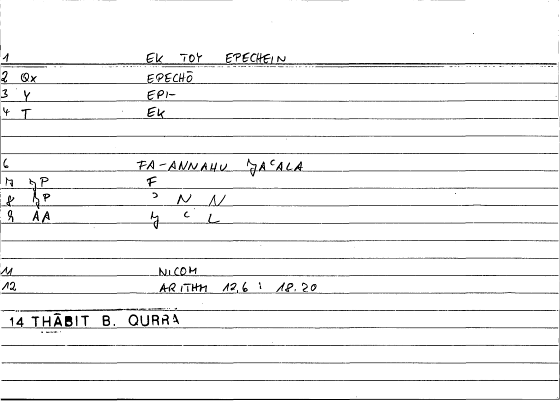 1 EK TOY EPECHEIN
2 Qx EPECHŌ
3 Y EPI-
4 T EK
6 FA-ANNAHU ǦAʿALA
7 ǦP F
8 ǦP ʾ N N
9 AA Ǧ ʿ L
11 NICOM
12 ARITHM 12,6 : 18.20
14 THĀBIT B. QURRA